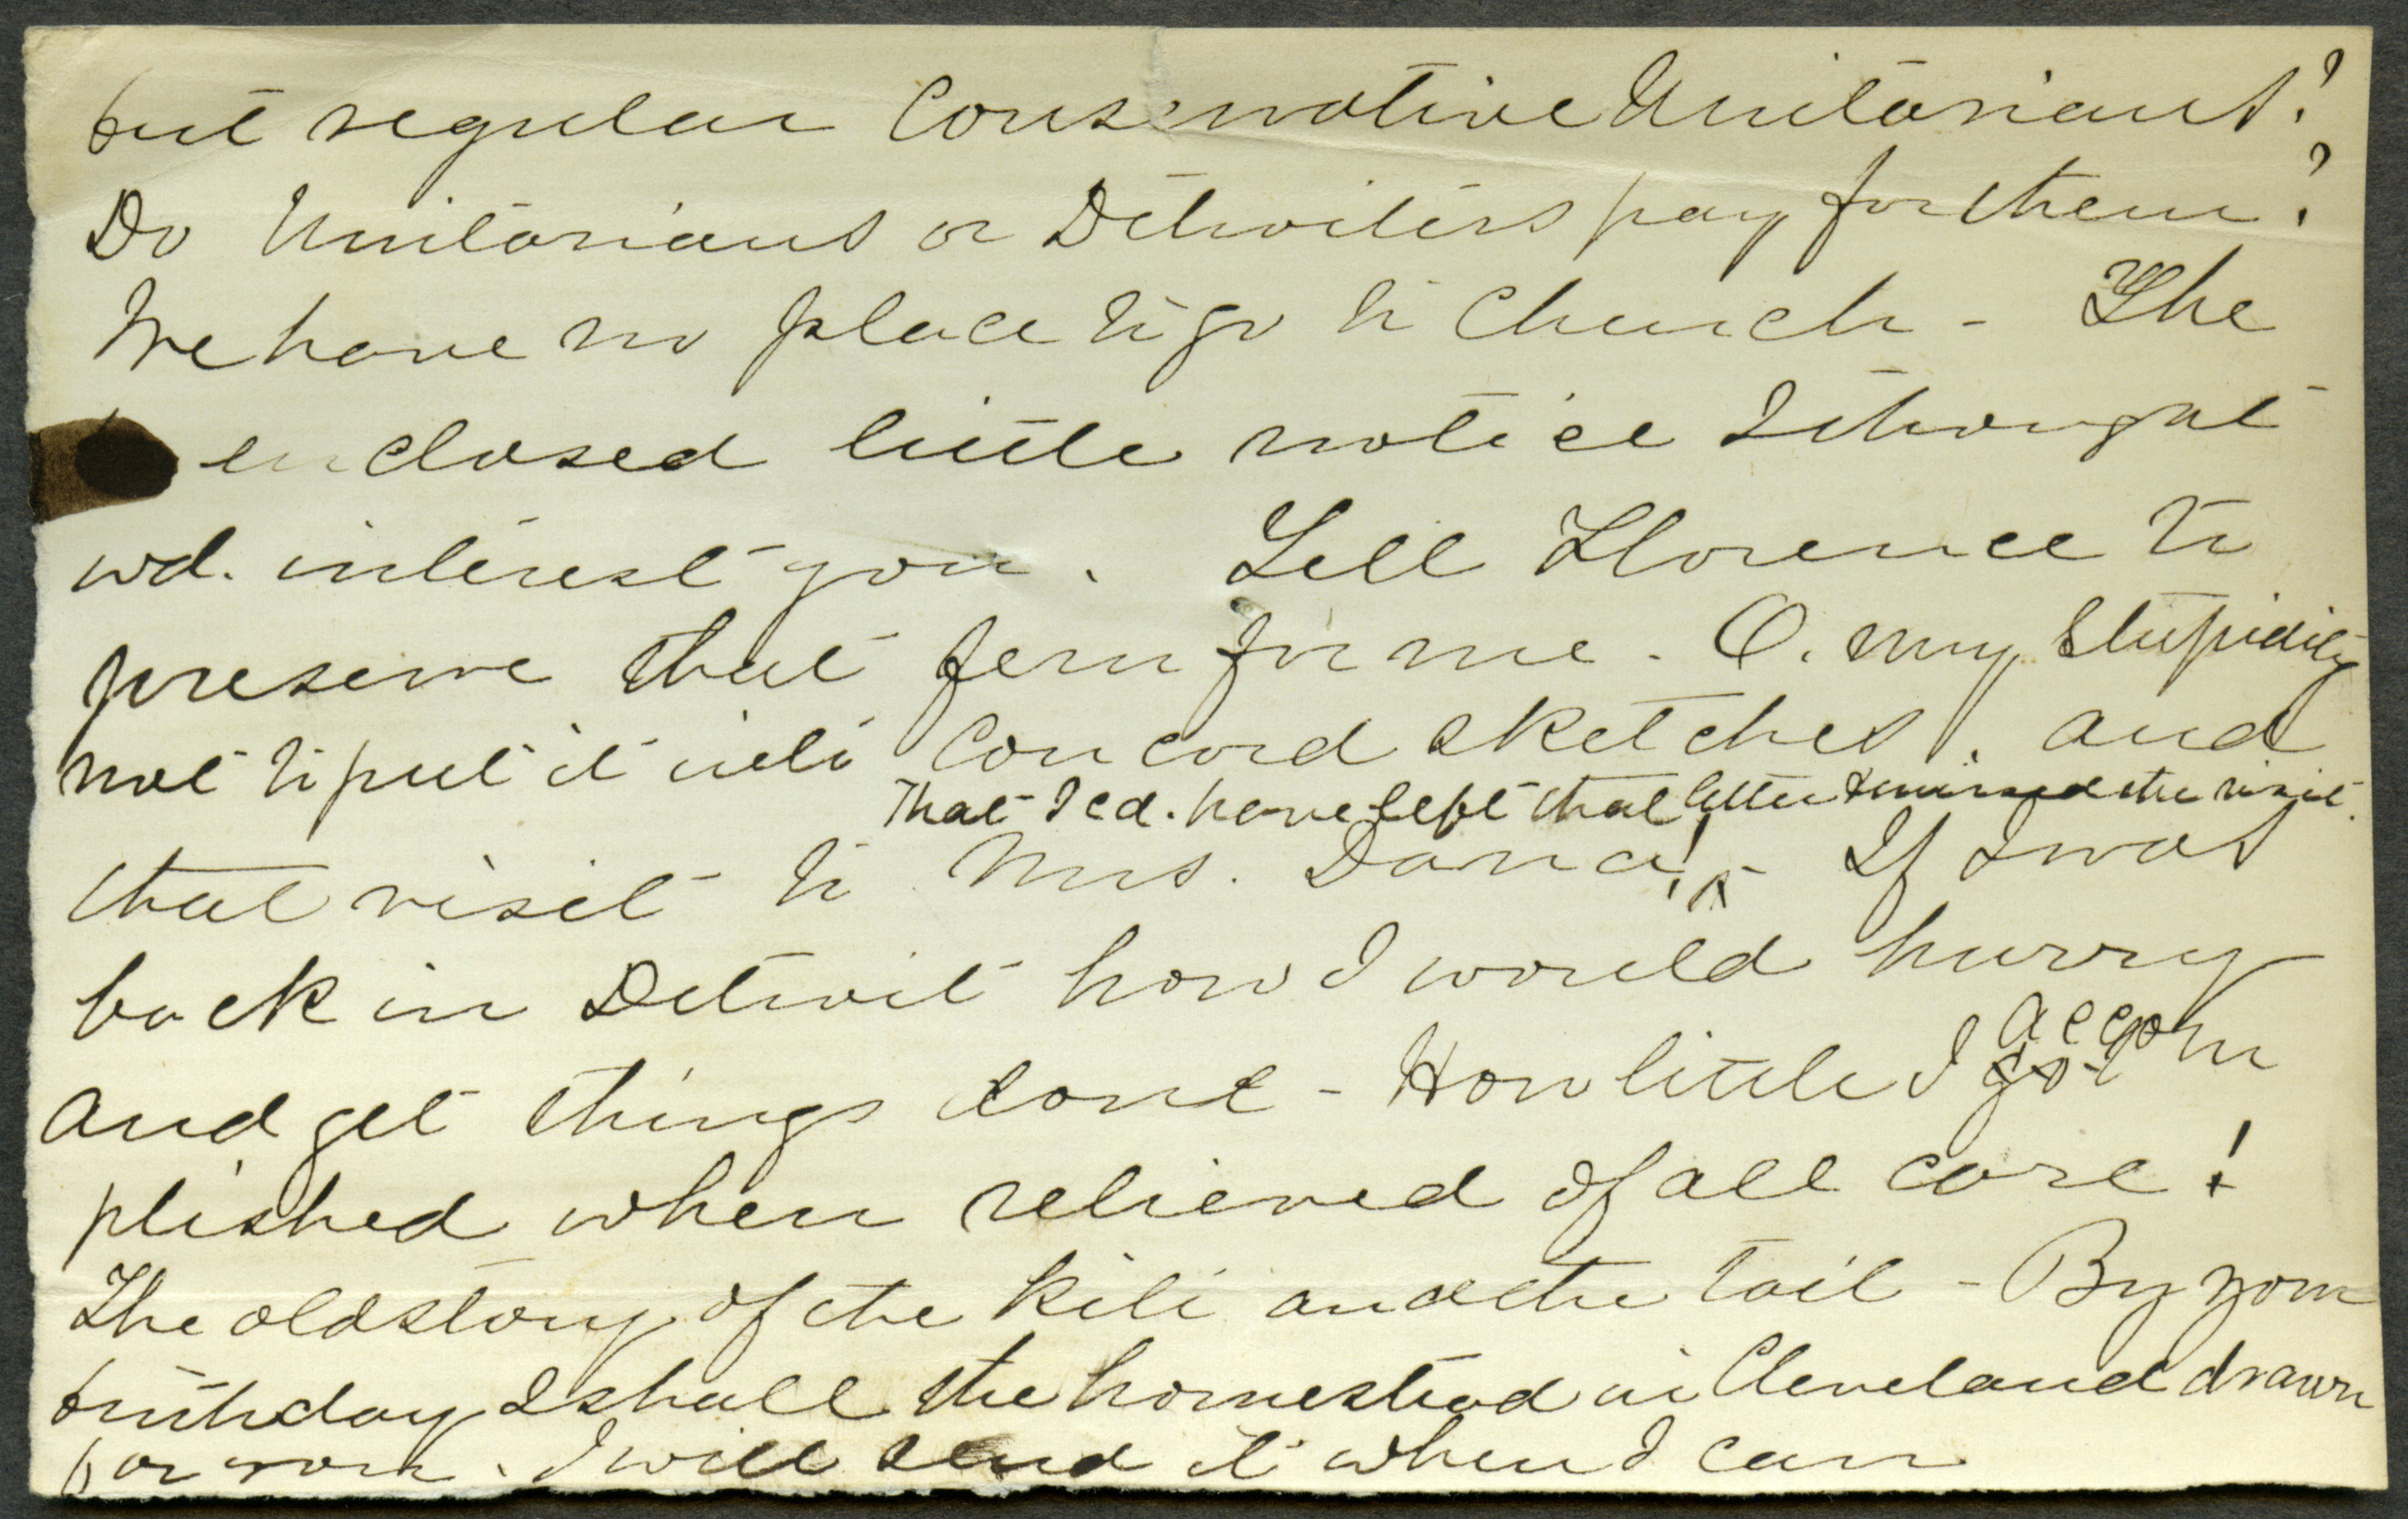 but regular Conservative Unitarians?
Do Unitarians or Detroiters pay for them?
We have no place to go to Church - The
enclosed little notice I thought
wd. interest you. Tell Florence to
preserve that fern for me. O. my stupidity
not to put it into Concord sketches. and
That I cd. have left that letter & missed the visit.
that visit to Mrs. Dana! If I was
back in Detroit how I would hurry
and get things done - How little I got accom
plished when relieved of all care!
The old story of the kite and the tail - By your
birthday I shall the homestead in Cleveland drawn
for you. I will send it when I can